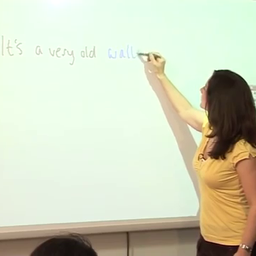 It's a very old wall